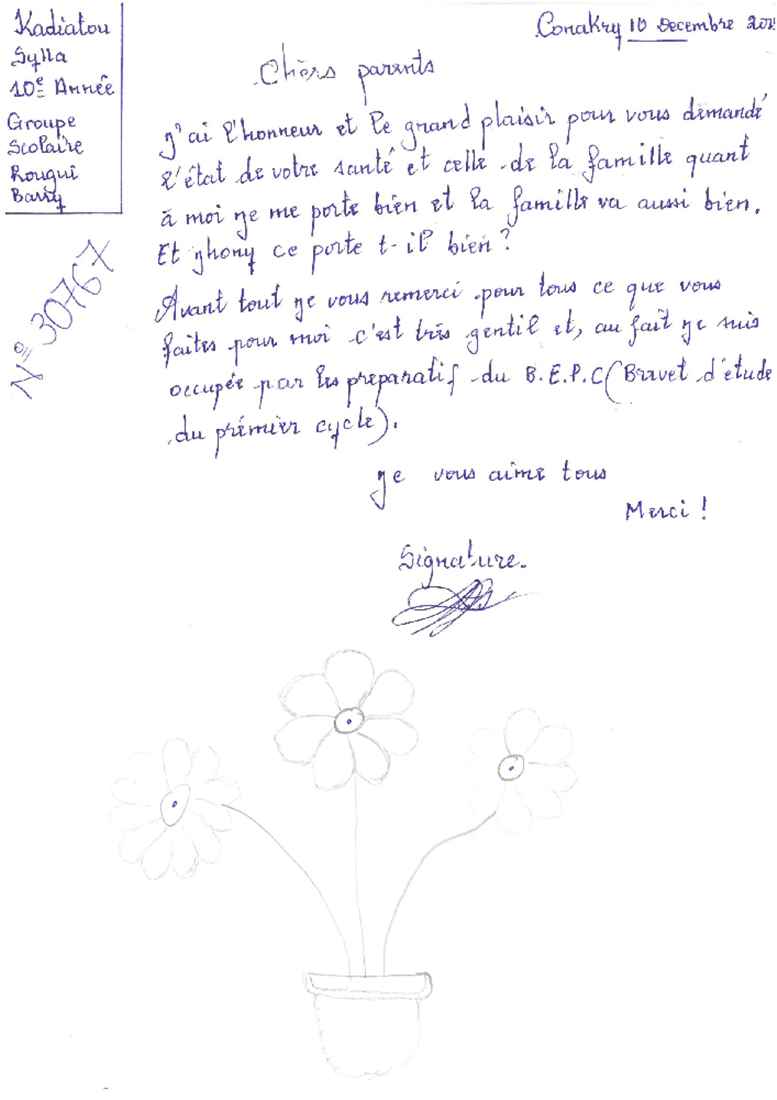 Kadiatou
Sylla
10e Année
Groupe
Scolaire
Rougui
Barry
N° 30767
Conakry 10 Decembre
Chèrs parents
J'ai l'honneur et le grand plaisir pour vous demandé
l'état de votre santé et celle de la famille quant
à moi je me porte bien et la famille va aussi bien.
Et jhony ce porte t-il bien?
Avant tout je vous remerci pour tous ce que vous
faites pour moi c'est très gentil et, au fait je suis
occupée par les preparatif du B.E.P.C (Brevet d'étude
du prémier cycle).
je vous aime tous
Merci !
Signature.